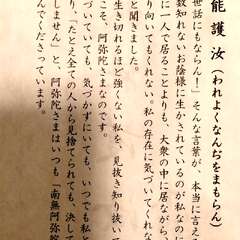 能護汝(われよくなんぢをまもらん)
世話にもならん!」そんな言葉が、本当に言える
数知れないお陰様に生かされているのが私なの
に一人で居ることよりも、大衆の中に居ながら
り向いてもくれない。私の存在に気づいてくれな
と聞きました。
生き切れるほど強くない私を、見抜き知り抜い
こそ、阿弥陀さまなのです。
づいていても、気づかずにいても、いつでも私と
り、「たとえ全ての人から見捨てられても、決して
しません」と、阿弥陀さまはいつも「南無阿弥陀
んでくださっています。